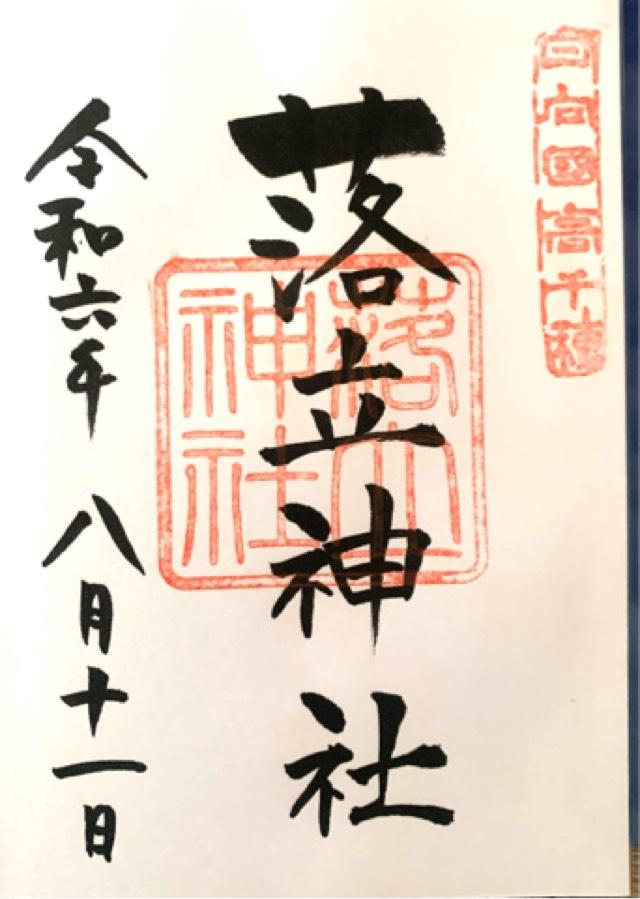 日向國高千穂
落立神社
落立神社
令和六年 八月十一日